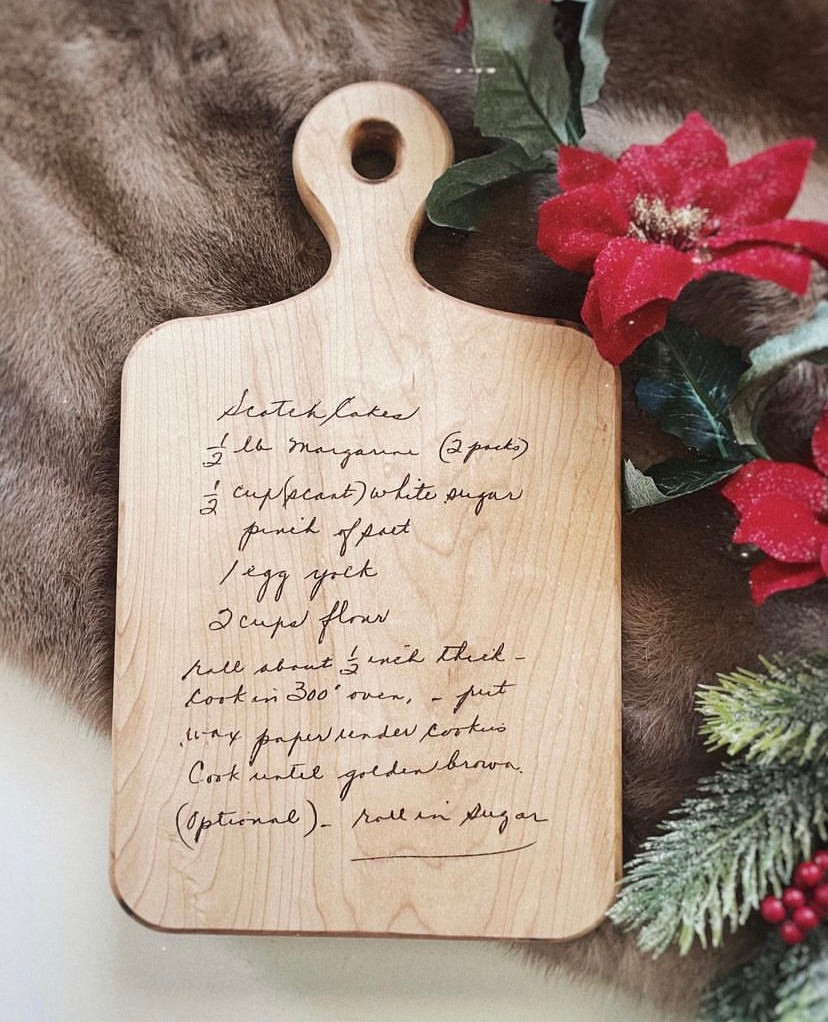 Scotch Cakes
½ lb Margarine (2 packs)
½ cup (scant) white sugar
pinch of salt
1 egg yolk
2 cups flour
roll about ½ inch thick -
Cook in 300° oven, - put
wax paper under cookies
Cook until golden brown.
(Optional) - roll in sugar